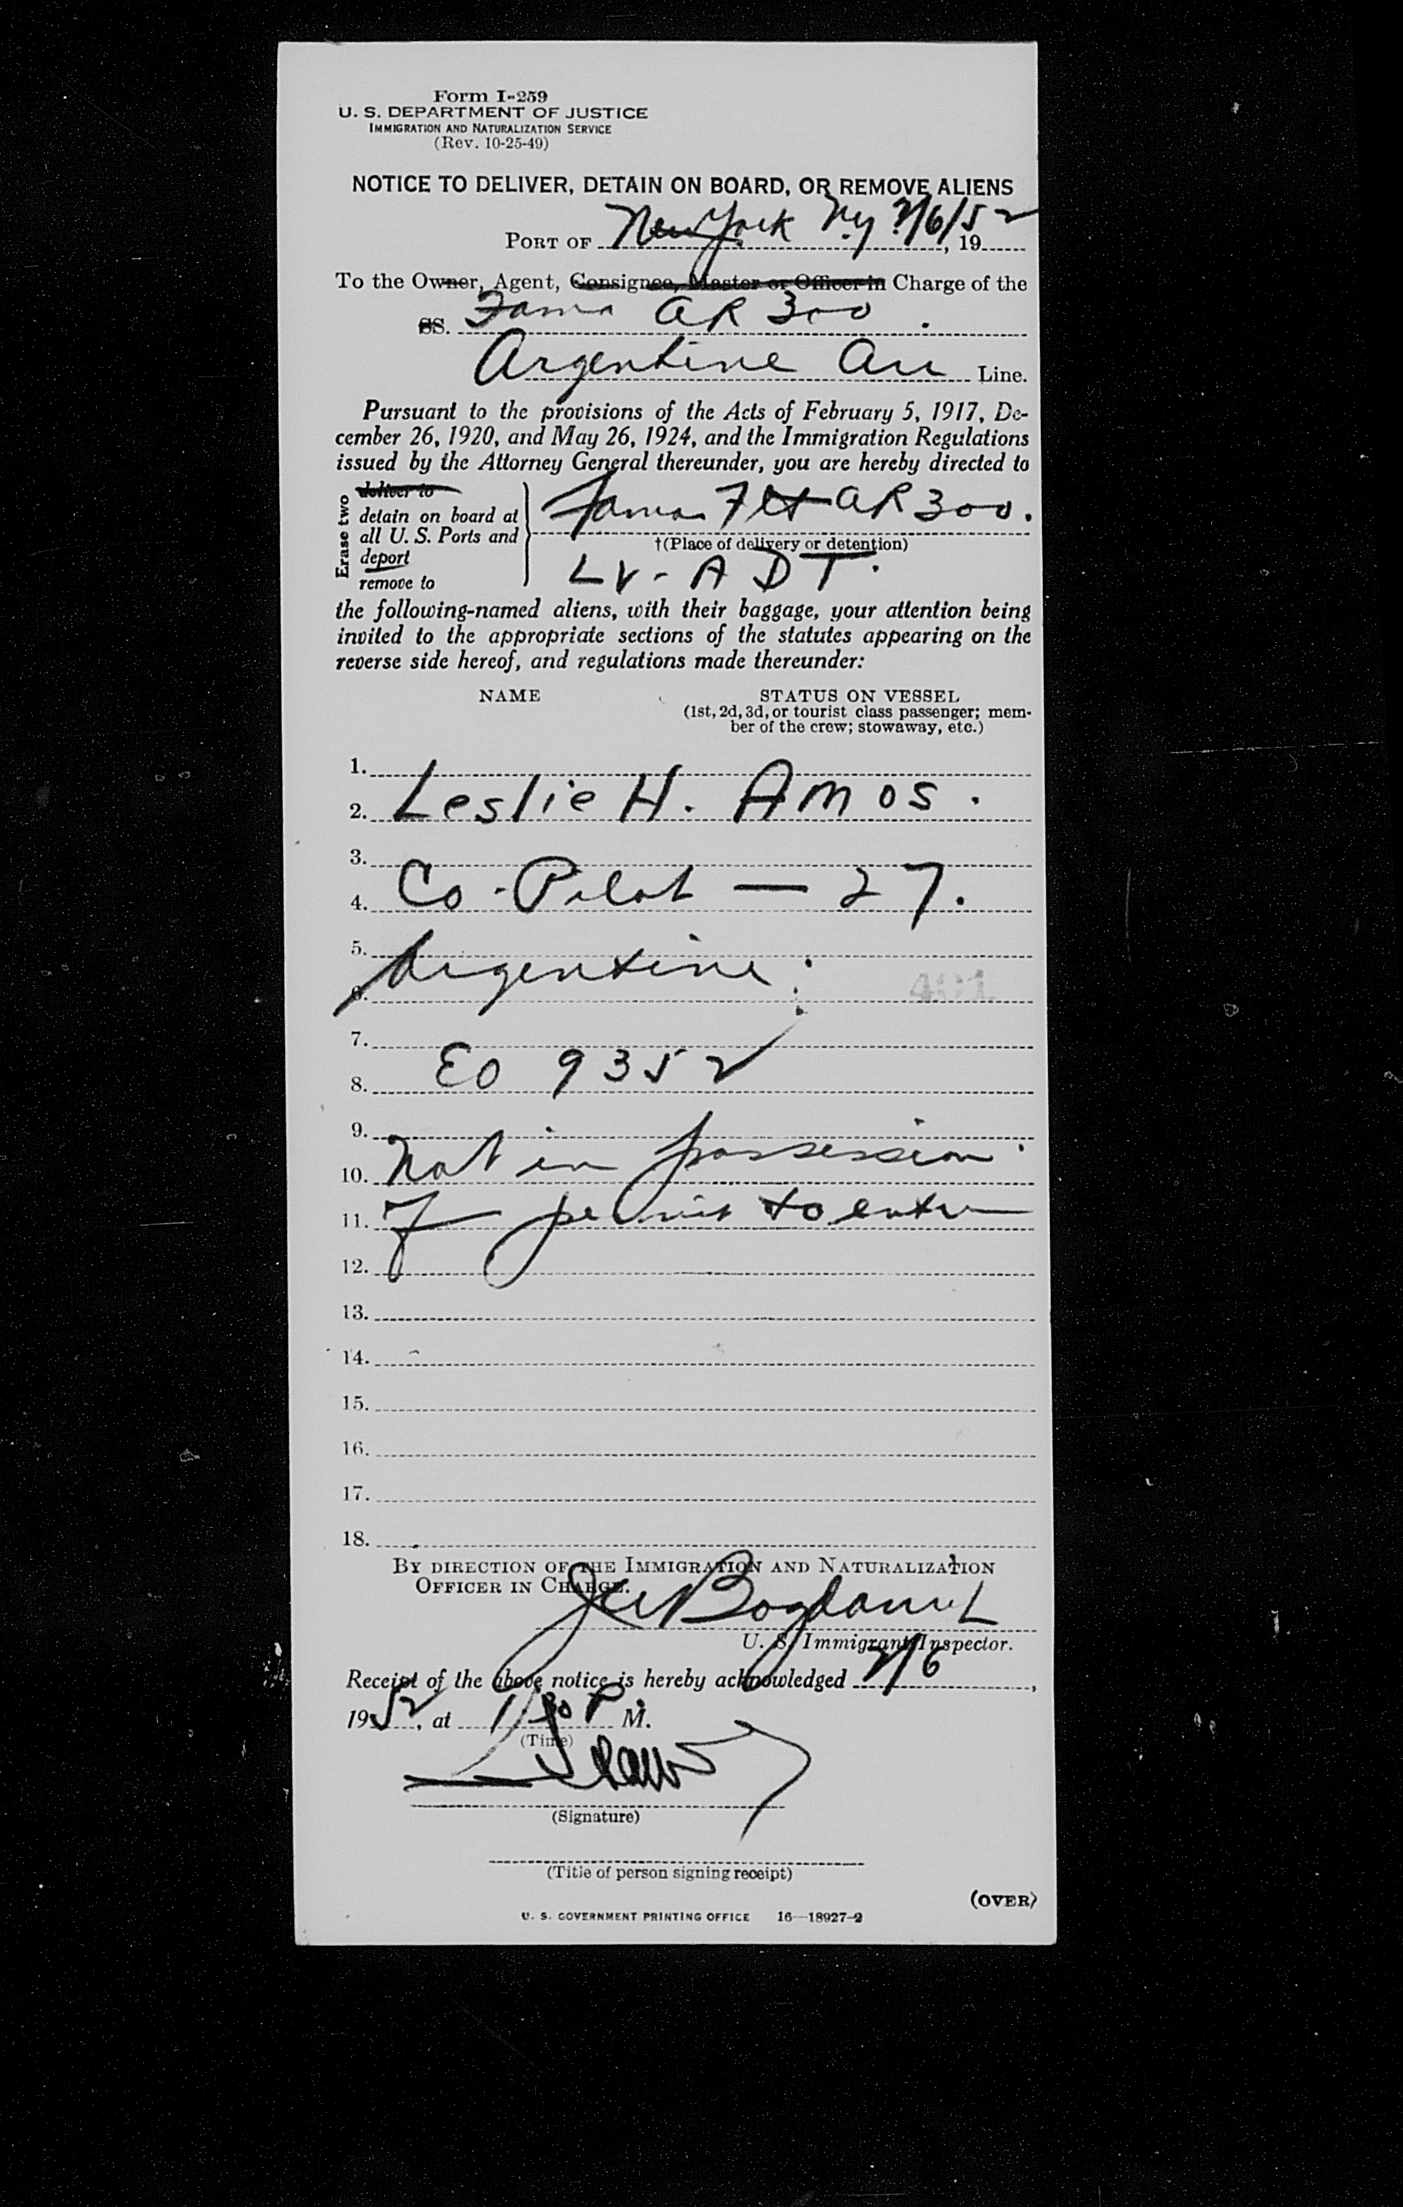 Form I-259
U. S. DEPARTMENT OF JUSTICE
IMMIGRATION AND NATURALIZATION SERVICE
(Rev. 10-25-49)
NOTICE TO DELIVER, DETAIN ON BOARD, OR REMOVE ALIENS
PORT OF New York N.y /6/52, 19
To the Owner, Agent, Consignee, Master or Officer in Charge of the
SS. Fama AR 300.
Argentine Air Line.
Pursuant to the provisions of the Acts of February 5, 1917, De-
cember 26, 1920, and May 26, 1924, and the Immigration Regulations
issued by the Attorney General thereunder, you are hereby directed to
Erase two
deliver to
detain on board at
all U. S. Ports and
deport
remove to
Fama Flt AR 300.
†(Place of delivery or detention)
LV-ADT.
the following-named aliens, with their baggage, your attention being
invited to the appropriate sections of the statutes appearing on the
reverse side hereof, and regulations made thereunder:
NAME STATUS ON VESSEL
(1st, 2d, 3d, or tourist class passenger; mem-
ber of the crew; stowaway, etc.)
1.
2. Leslie H. Amos.
3.
4. Co-Pilot — 27.
5.
6. Argentine. 401
7.
8. EO 9352
9.
10. Not in possession
11. of permit to enter
12.
13.
14.
15.
16.
17.
18.
BY DIRECTION OF THE IMMIGRATION AND NATURALIZATION
OFFICER IN CHARGE.
U. S. Immigrant Inspector.
Receipt of the above notice is hereby acknowledged /6,
1952, at 1 30 P M.
(Time)
(Signature)
(Title of person signing receipt)
(OVER)
U. S. GOVERNMENT PRINTING OFFICE 16—18927-2